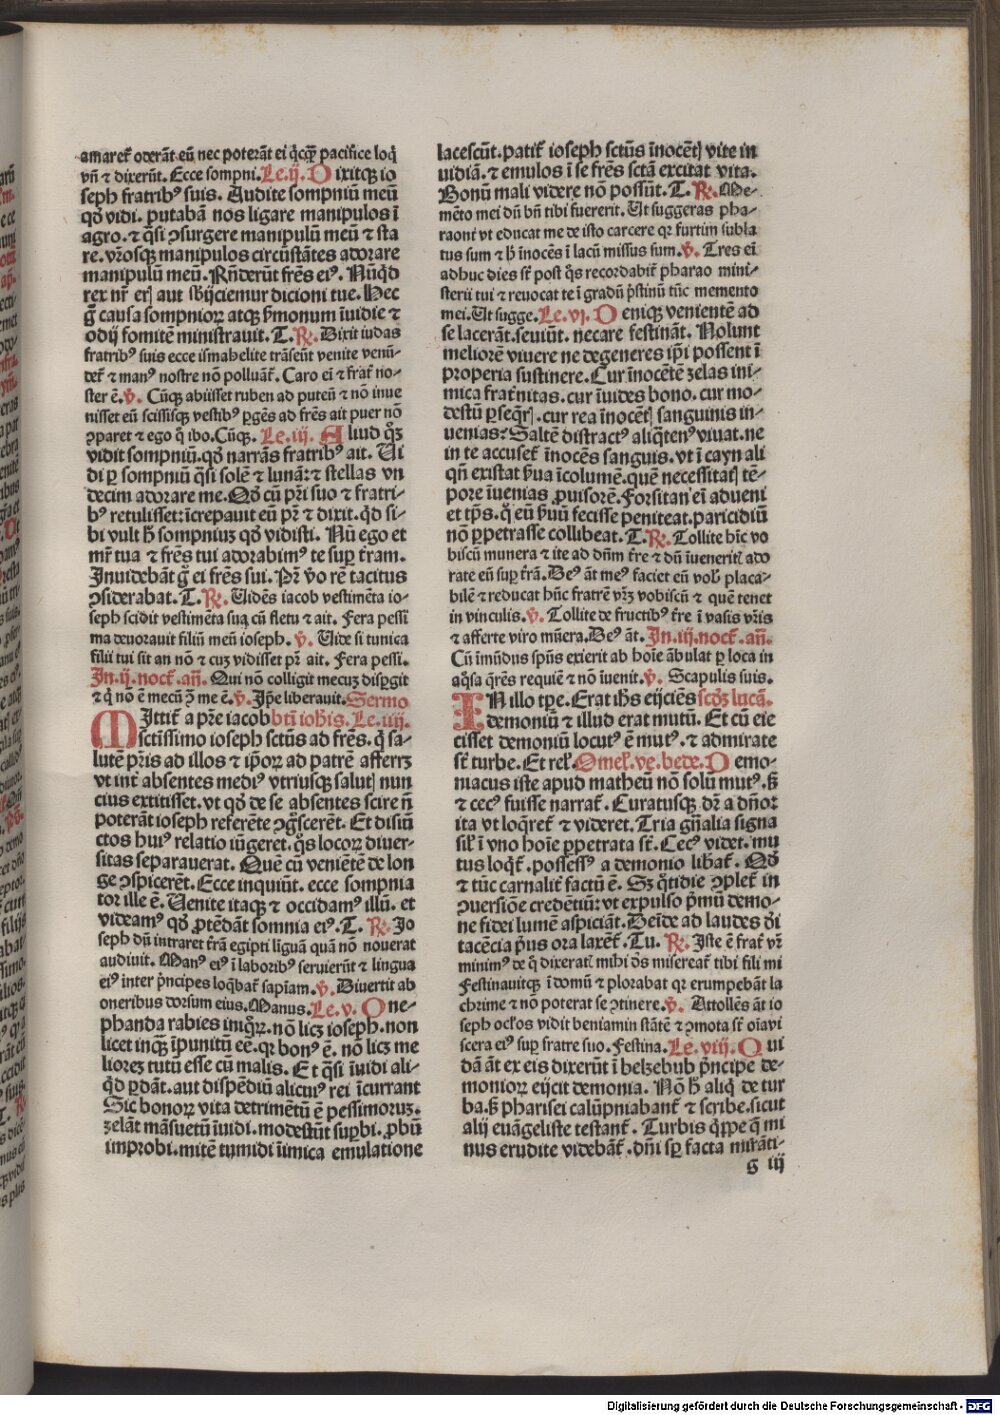 amaret̄ oderāt eū nec poterāt ei q̇cq̄ꝫ pacifice loq̇
vn̄ ⁊ dixerūt. Ecce sompni. Le. ij. Dixitqꝫ io
seph fratribꝰ suis. Audite sompniū meū
qḋ vidi. putabā nos ligare manipulos ī
agro. ⁊ q̄si ꝯsurgere manipulū meū ⁊ sta
re. vr̄osqꝫ manipulos circūstātes adorare
manipulū meū. Rn̄derūt fr̄es eiꝰ. Nūqḋ
rex nr̄ erꝭ aut sb̄ijciemur dicioni tue. Hec
g̊ causa sompnioꝝ atqꝫ ẜmonum īuidie ⁊
odij fomitē ministrauit. T. R̷. Dixit iudas
fratribꝰ suis ecce ismahelite trāseūt venite venū-
det̄ ⁊ manꝰ nostre nō polluāt̄. Caro eī ⁊ frat̄ no-
ster ē. v̷. Cūqꝫ abiisset ruben ad puteū ⁊ nō inue
nisset eū scissisqꝫ vestibꝰ ꝑgēs ad fr̄es ait puer nō
ꝯparet ⁊ ego q̊ ibo. Cūqꝫ. Le. iij. Aliud qꝫ
vidit sompniū. qḋ narrās fratribꝰ ait. Vi
di ꝑ sompniū q̄si solē ⁊ lunā: ⁊ stellas vn
decim adorare me. Qḋ cū pr̄i suo ⁊ fratri-
bꝰ retulisset: īcrepauit eū pr̄ ⁊ dixit. qḋ si-
bi vult h̄ sompniuꝫ qḋ vidisti. Nū ego et
mr̄ tua ⁊ fr̄es tui adorabimꝰ te suꝑ t̄ram.
Inuidebāt g̊ ei fr̄es sui. Pr̄ v̊o rē tacitus
ꝯsiderabat. T. R̷. Vidēs iacob vestimēta io-
seph scidit vestimēta sua cū fletu ⁊ ait. Fera pessi
ma deuorauit filiū meū ioseph. v̷. Vide si tunica
filii tui sit an nō ⁊ cuꝫ vidisset pr̄ ait. Fera pessi.
In. ij. noct̄. an̄. Qui nō colligit mecuꝫ dispgit
⁊ q̇ nō ē mecū ꝯ̄ me ē. v̷. Ip̄e liberauit. Sermo
Mittit̄ a pr̄e iacob btī ioh̄is. Le. iiij.
sctīssimo ioseph sctūs ad fr̄es. q̇ sa-
lutē pr̄is ad illos ⁊ ip̄oꝝ ad patrē afferꝫ
vt int̄ absentes mediꝰ vtriusqꝫ salutꝭ nun
cius extitisset. vt qḋ de se absentes scire n̄
poterāt ioseph referēte ꝯg̊scerēt. Et disiū
ctos huiꝰ relatio iūgeret. q̊s locoꝝ diuer-
sitas separauerat. Quē cū veniētē de lon
ge ꝯspicerēt. Ecce inquiūt. ecce sompnia
tor ille ē. Uenite itaqꝫ ⁊ occidamꝰ illū. et
videamꝰ qḋ ꝓtēdāt somnia eiꝰ. T. R̷. Jo
seph dū intraret t̄rā egipti liguā quā nō nouerat
audiuit. Manꝰ eiꝰ ī laboribꝰ seruierūt ⁊ lingua
eiꝰ inter pͥncipes loq̄bat̄ sapīam. v̷. Diuertit ab
oneribus dorsum eius. Manus. Le. v. One-
phanda rabies iniq̊ꝝ. nō licꝫ ioseph. non
licet inqꝫ īpunitū eē. qꝛ bonꝰ ē. nō licꝫ me
lioreꝫ tutū esse cū malis. Et q̄si īuidi ali-
qḋ ꝑdāt. aut dispēdiū alicuiꝰ rei īcurrant
Sic bonoꝝ vita detrimētū ē pessimoruꝫ.
zelāt māsuetū īuidi. modestūt suꝑbi. ꝓbū
improbi. mitē tumidi iīmica emulatione
lacescūt. patit̄ ioseph sctūs īnocētꝭ vite in
uidiā. ⁊ emulos ī se fr̄es sctā excitat vita.
Bonū mali videre nō possūt. T. R̷. Me-
mēto mei dū bn̄ tibi fuererit. Ut suggeras pha-
raoni vt educat me de isto carcere qꝛ furtim subla
tus sum ⁊ h̄ īnocēs ī lacū missus sum. v̷. Tres eī
adhuc dies st̄ post q̊s recordabit̄ pharao mini-
sterii tui ⁊ reuocat te ī gradū pͥstinū tūc memento
mei. Ut sugge. Le. vi. Denique venientē ad
se lacerāt. seuiūt. necare festināt. Nolunt
meliorē viuere ne degeneres ip̄i possent ī
properia sustinere. Cur īnocētē zelas ini-
mica frat̄nitas. cur īuides bono. cur mo-
destū ꝑseq̄rꝭ. cur rea īnocētꝭ sanguinis in-
uenias? Saltē distractꝰ aliq̄tenꝰ viuat. ne
in te accuset̄ īnocēs sanguis. vt ī cayn ali
qn̄ existat ẜua īcolume. quē necessitatꝭ tē-
pore īuenias ꝓuisorē. Forsitan eī adueni
et tp̄s. q̊ eū ẜuū fecisse peniteat. paricidiū
nō ꝑpetrasse collibeat. T. R̷. Tollite hīc vo
biscū munera ⁊ ite ad dn̄m t̄re ⁊ dū īuenerit̄ ado
rate eū suꝑ t̄rā. Deꝰ āt meꝰ faciet eū vob̄ placa-
bilē ⁊ reducat hūc fratrē vr̄ꝫ vobiscū ⁊ quē tenet
in vinculis. v̷. Tollite de fructibꝰ t̄re ī vasis vr̄is
⁊ afferte viro mūera. Deꝰ āt. In. iij. noct̄. an̄.
Cū īmūdus spūs exierit ab hoīe ābulat ꝑ loca in
aq̄sa q̄rēs requiē ⁊ nō īuenit. v̷. Scapulis suis.
IN illo tp̄e. Erat ih̄s eijciēs scdꝫ lucā.
demoniū ⁊ illud erat mutū. Et cū eie
cisset demoniū locutꝰ ē mutꝰ. ⁊ admirate
st̄ turbe. Et rel̄. Omel̄. vē. bede. Demo-
niacus iste apud matheū nō solū mutꝰ. ꞩ
⁊ cecꝰ fuisse narrat̄. Curatusqꝫ dr̄ a dn̄o
ita vt loq̄ret̄ ⁊ videret. Tria gn̄alia signa
sil̄ ī vno hoīe ꝑpetrata st̄. Cecꝰ videt. mu
tus loq̄t̄. possessꝰ a demonio lib̄at̄. Qḋ
⁊ tūc carnalit̄ factū ē. Sꝫ q̊tidie ꝯplet̄ in
ꝯuersiōe credētiū: vt expulso pͥmū demo-
ne fidei lumē aspiciāt. Deīde ad laudes d̄i
tacēcia pͥus ora laxēt̄. Tu. R̷. Iste ē frat̄ vr̄
minimꝰ de q̊ dixeratꝭ mihi dēs misereat̄ tibi fili mi
Festinauitqꝫ ī domū ⁊ plorabat qꝛ erumpebāt la
chrime ⁊ nō poterat se ꝯtinere. v̷. Attollēs āt io
seph oclos vidit beniamin stātē ⁊ ꝯmota st̄ oīa vi
scera eiꝰ suꝑ fratre suo. Festina. Le. viij. Qui
dā āt ex eis dixerūt ī belzebub pͥncipe de-
monioꝝ eijcit demonia. Nō h̄ aliq̇ de tur
ba. ꞩ pharisei calūpniabant̄ ⁊ scribe. sicut
alij euāgeliste testant̄. Turbis q̄ꝓpe q̄ mi
nus erudite videbāt̄. dn̄i sꝑ facta mirāti-
g iij
Digitalisierung gefördert durch die Deutsche Forschungsgemeinschaft - DFG